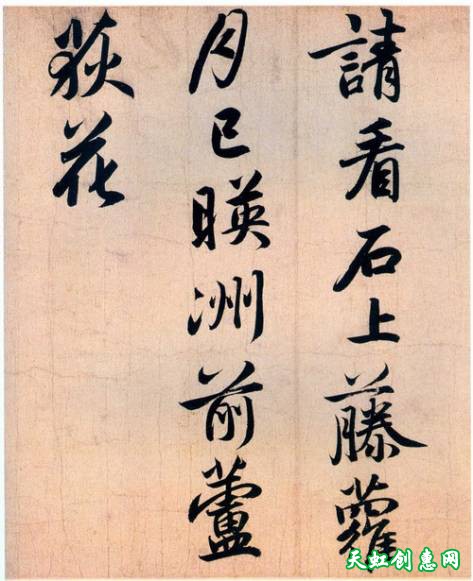 請看石上藤蘿
月已暎洲前蘆
荻花
天虹创惠网